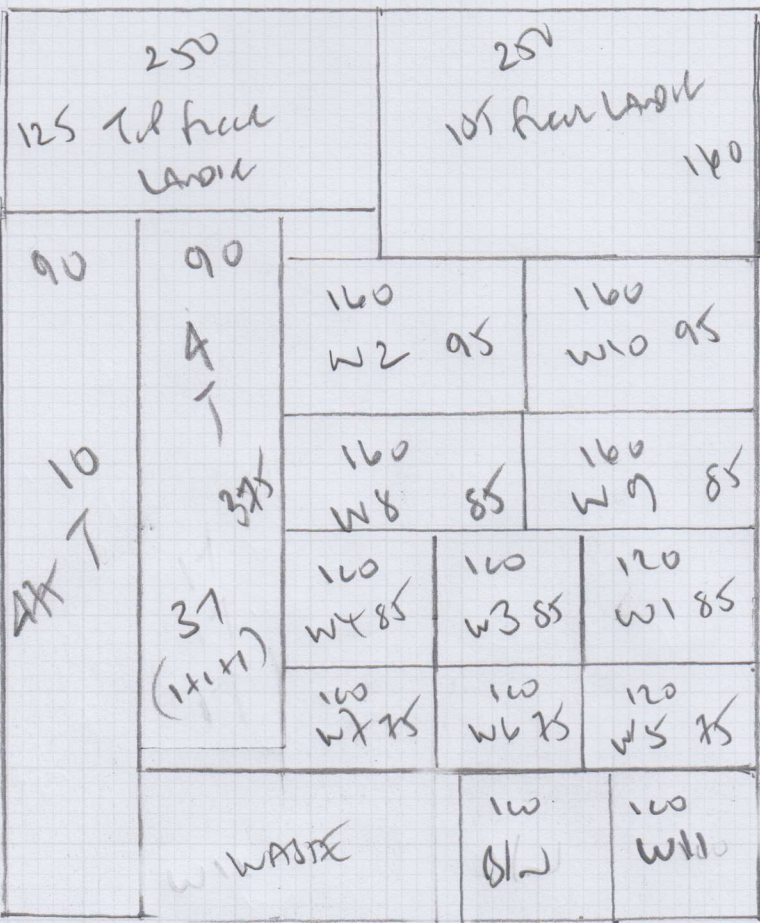 250
125 floor
LANDIN
250
floor LANDIN
160
90
10
T
475
90
4
T
375
3T
(1+1+1)
160
W2 95
160
W10 95
160
W8 85
160
W9 85
100
W4 85
100
W3 85
120
W1 85
100
W7 75
100
W6 75
120
W5 75
WASTE
100
100
W11